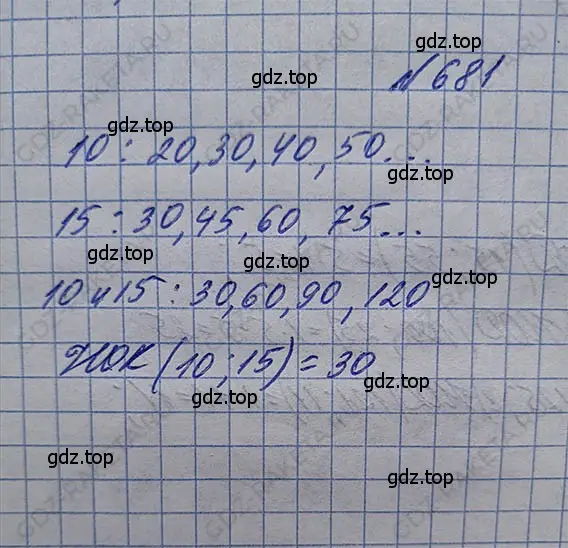 №681
10: 20,30,40,50...
15: 30,45,60, 75...
10 и 15: 30,60,90,120
НОК (10;15)=30
gdz.top
gdz.top
gdz.top
gdz.top
gdz.top
gdz.top
gdz.top
gdz.top
gdz.top
GDZ-RAKETA.RU